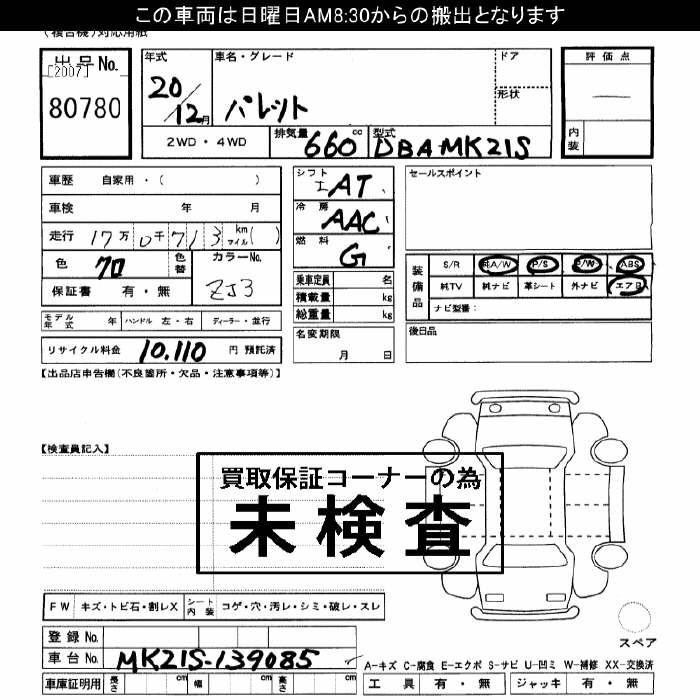 この車両は日曜日AM8:30からの搬出となります
(複合機)対応用紙
出品No.
[2007]
80780
年式 車名・グレード ドア
20/12月 パレット 形状
2WD・4WD 排気量 660cc 型式 DBAMK21S
評価点
—
内装
車歴 自家用・( )
車検 年 月
走行 17万0千713 km マイル( )
色 クロ 色替 カラーNo. ZJ3
保証書 有・無
モデル年式 年 ハンドル 左・右 ディーラー・並行
リサイクル料金 10,110 円 預託済
シフト AT
冷房 AAC
燃料 G
乗車定員 名
積載量 kg
総重量 kg
名変期限
月 日
セールスポイント
装備品 S/R 純A/W P/S P/W ABS
純TV 純ナビ 革シート 外ナビ エアB
ナビ型番:
後日品
【出品店申告欄(不良箇所・欠品・注意事項等)】
【検査員記入】
買取保証コーナーの為
未検査
FW キズ・トビ石・割レX シート内装 コゲ・穴・汚レ・シミ・破レ・スレ
登録No.
車台No. MK21S-139085
車庫証明用 長さ cm 幅 cm 高さ cm
スペア
A-キズ C-腐食 E-エクボ S-サビ U-凹ミ W-補修 XX-交換済
工具 有・無 ジャッキ 有・無